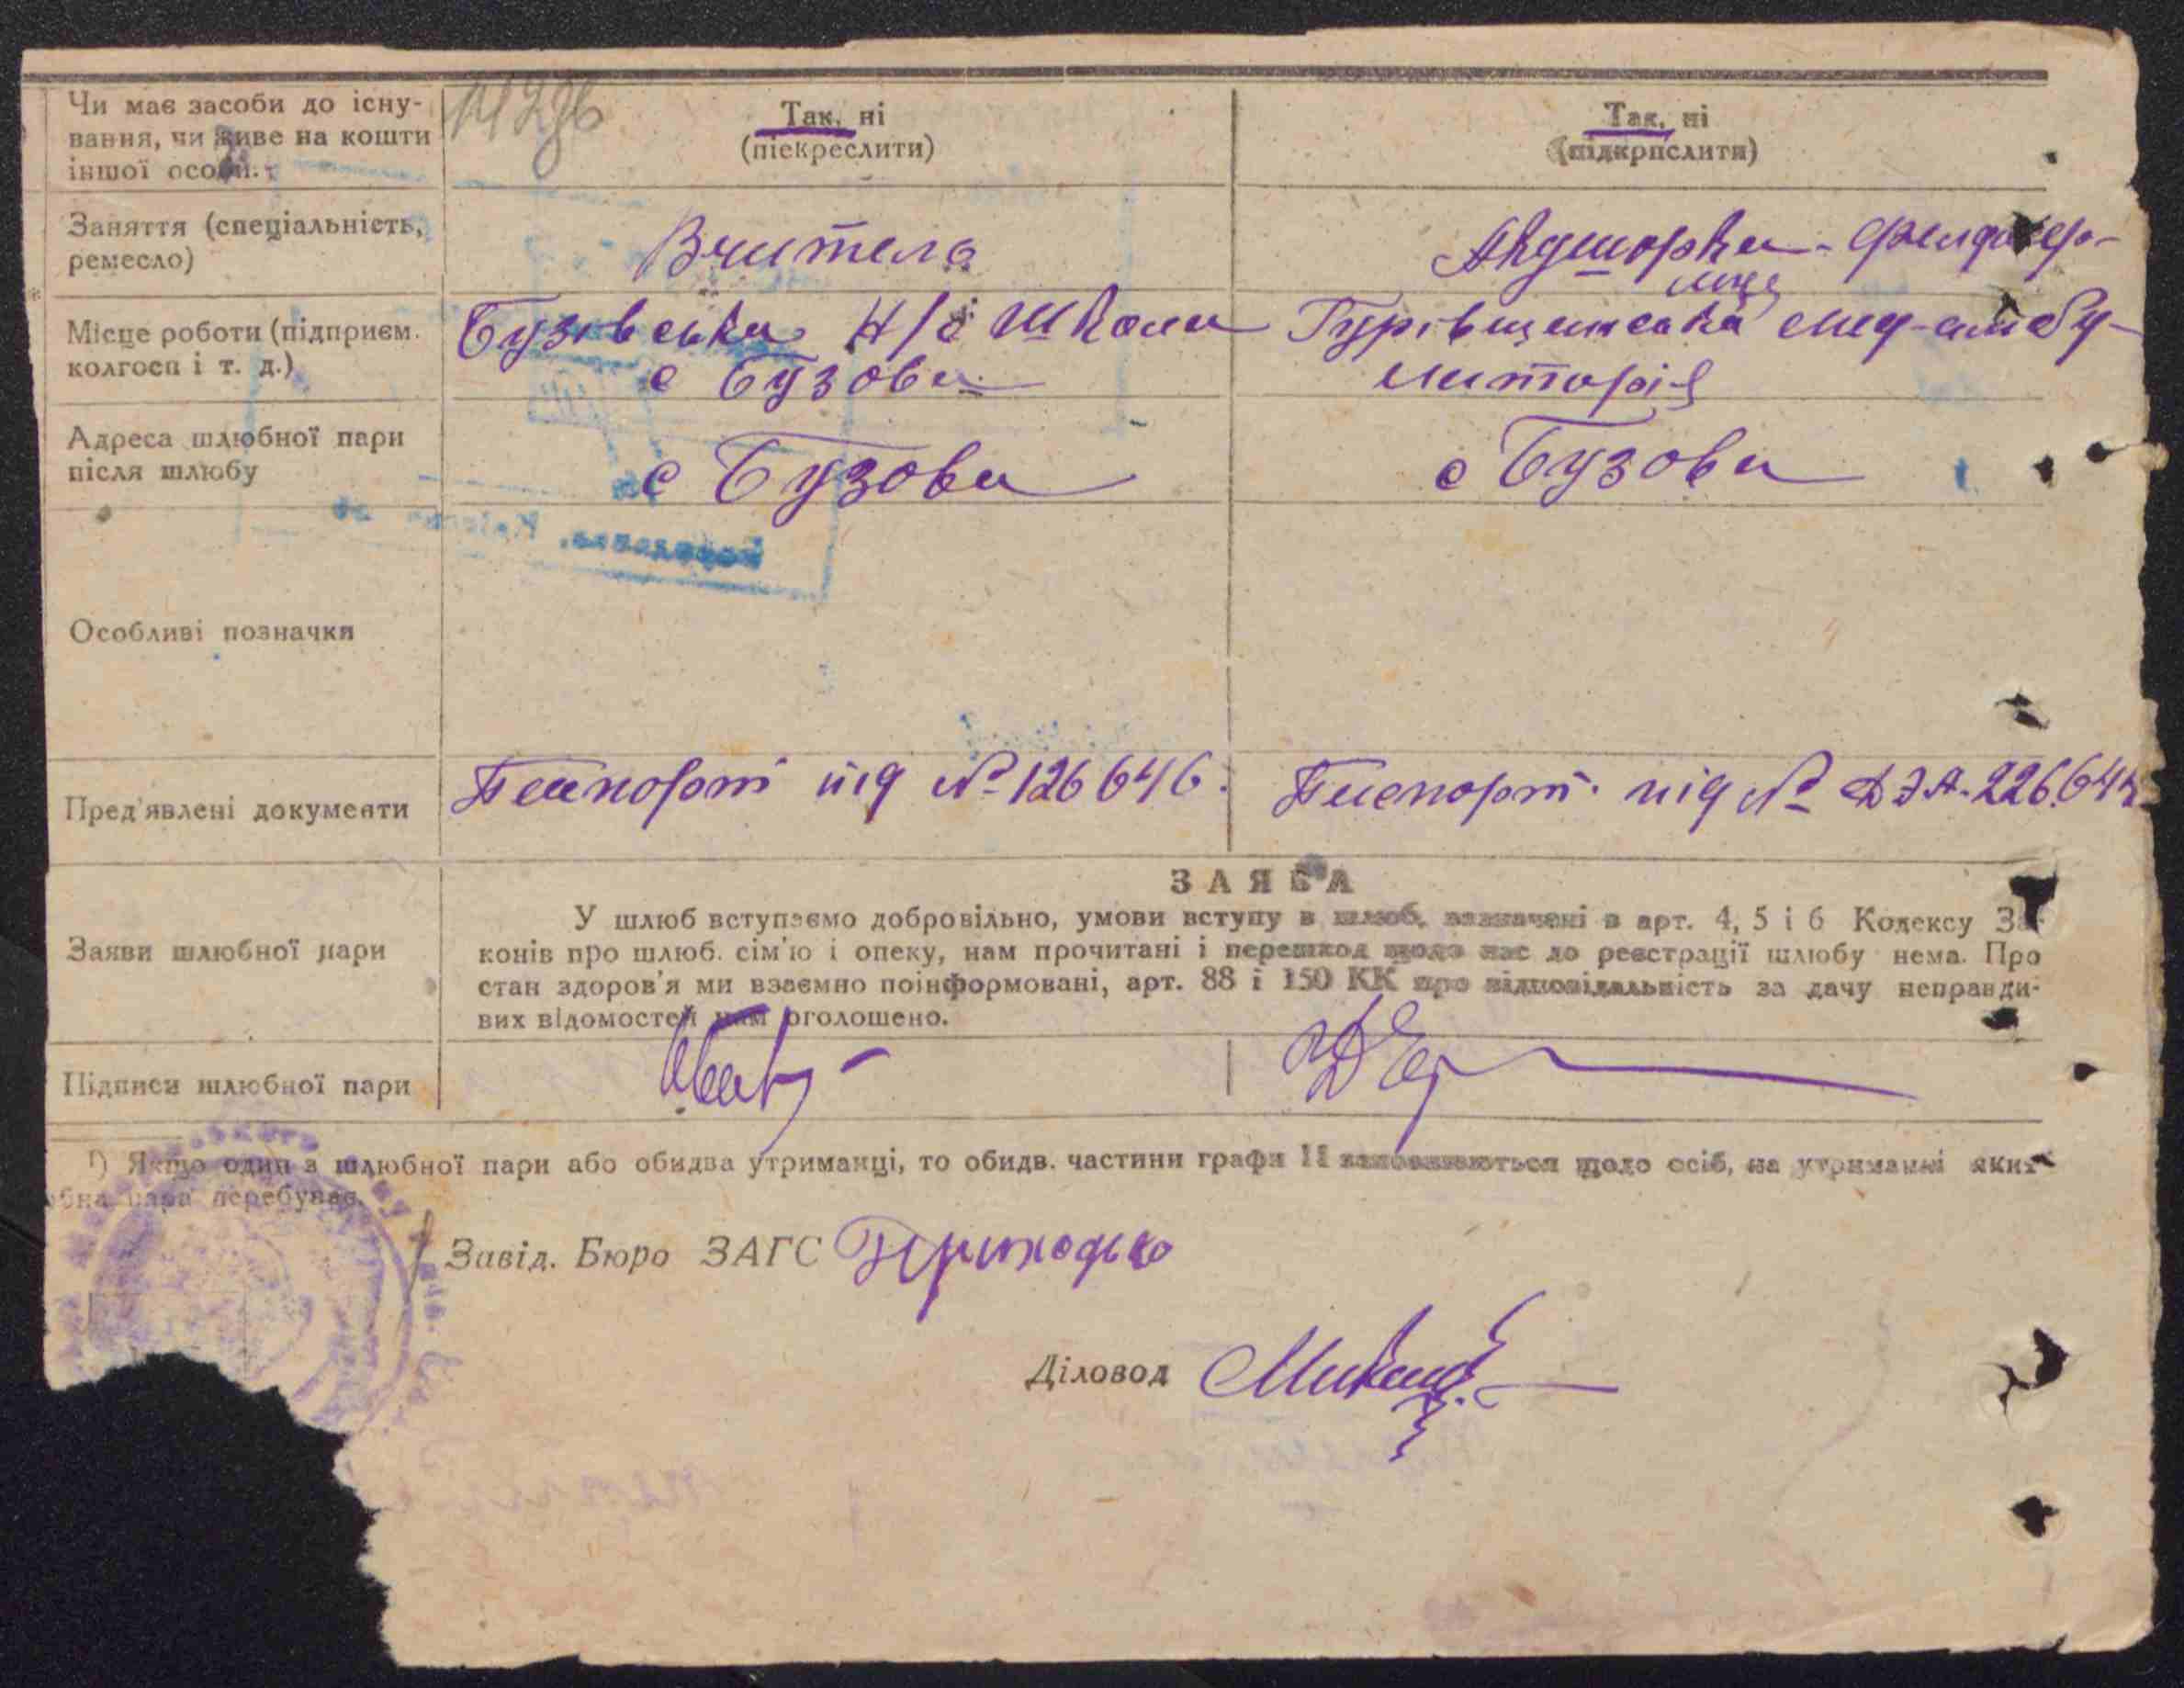 Чи має засоби до існу-
вання, чи живе на кошти
іншої особи.
Так, ні
(піекреслити)
Так, ні
(підкрпслити)
Заняття (спеціальність,
ремесло)
Вчитель
Акушорка - фельдшер-
лиця
Місце роботи (підприєм.
колгосп і т. д.)
Бузівська Н/с школа
с Бузова
Гурівщинська мед-амбу-
латорія
Адреса шлюбної пари
після шлюбу
с Бузова
с Бузова
Особливі позначки
Пред'явлені документи
Паспорт під № 126646.
Паспорт під №
Заяви шлюбної пари
ЗАЯВА
У шлюб вступаємо добровільно, умови вступу в шлюб, зазначені в арт. 4, 5 і 6 Кодексу За-
конів про шлюб. сім'ю і опеку, нам прочитані і перешкод щодо нас до реєстрації шлюбу нема. Про
стан здоров'я ми взаємно поінформовані, арт. 88 і 150 КК про відповідальність за дачу неправди-
вих відомостей нам оголошено.
Підписи шлюбної пари
1) Якщо один з шлюбної пари або обидва утриманці, то обидв. частини графи 11 заповнюються щодо осіб, на утриманні яких
бна пара перебуває.
Завід. Бюро ЗАГС Приходько
Діловод